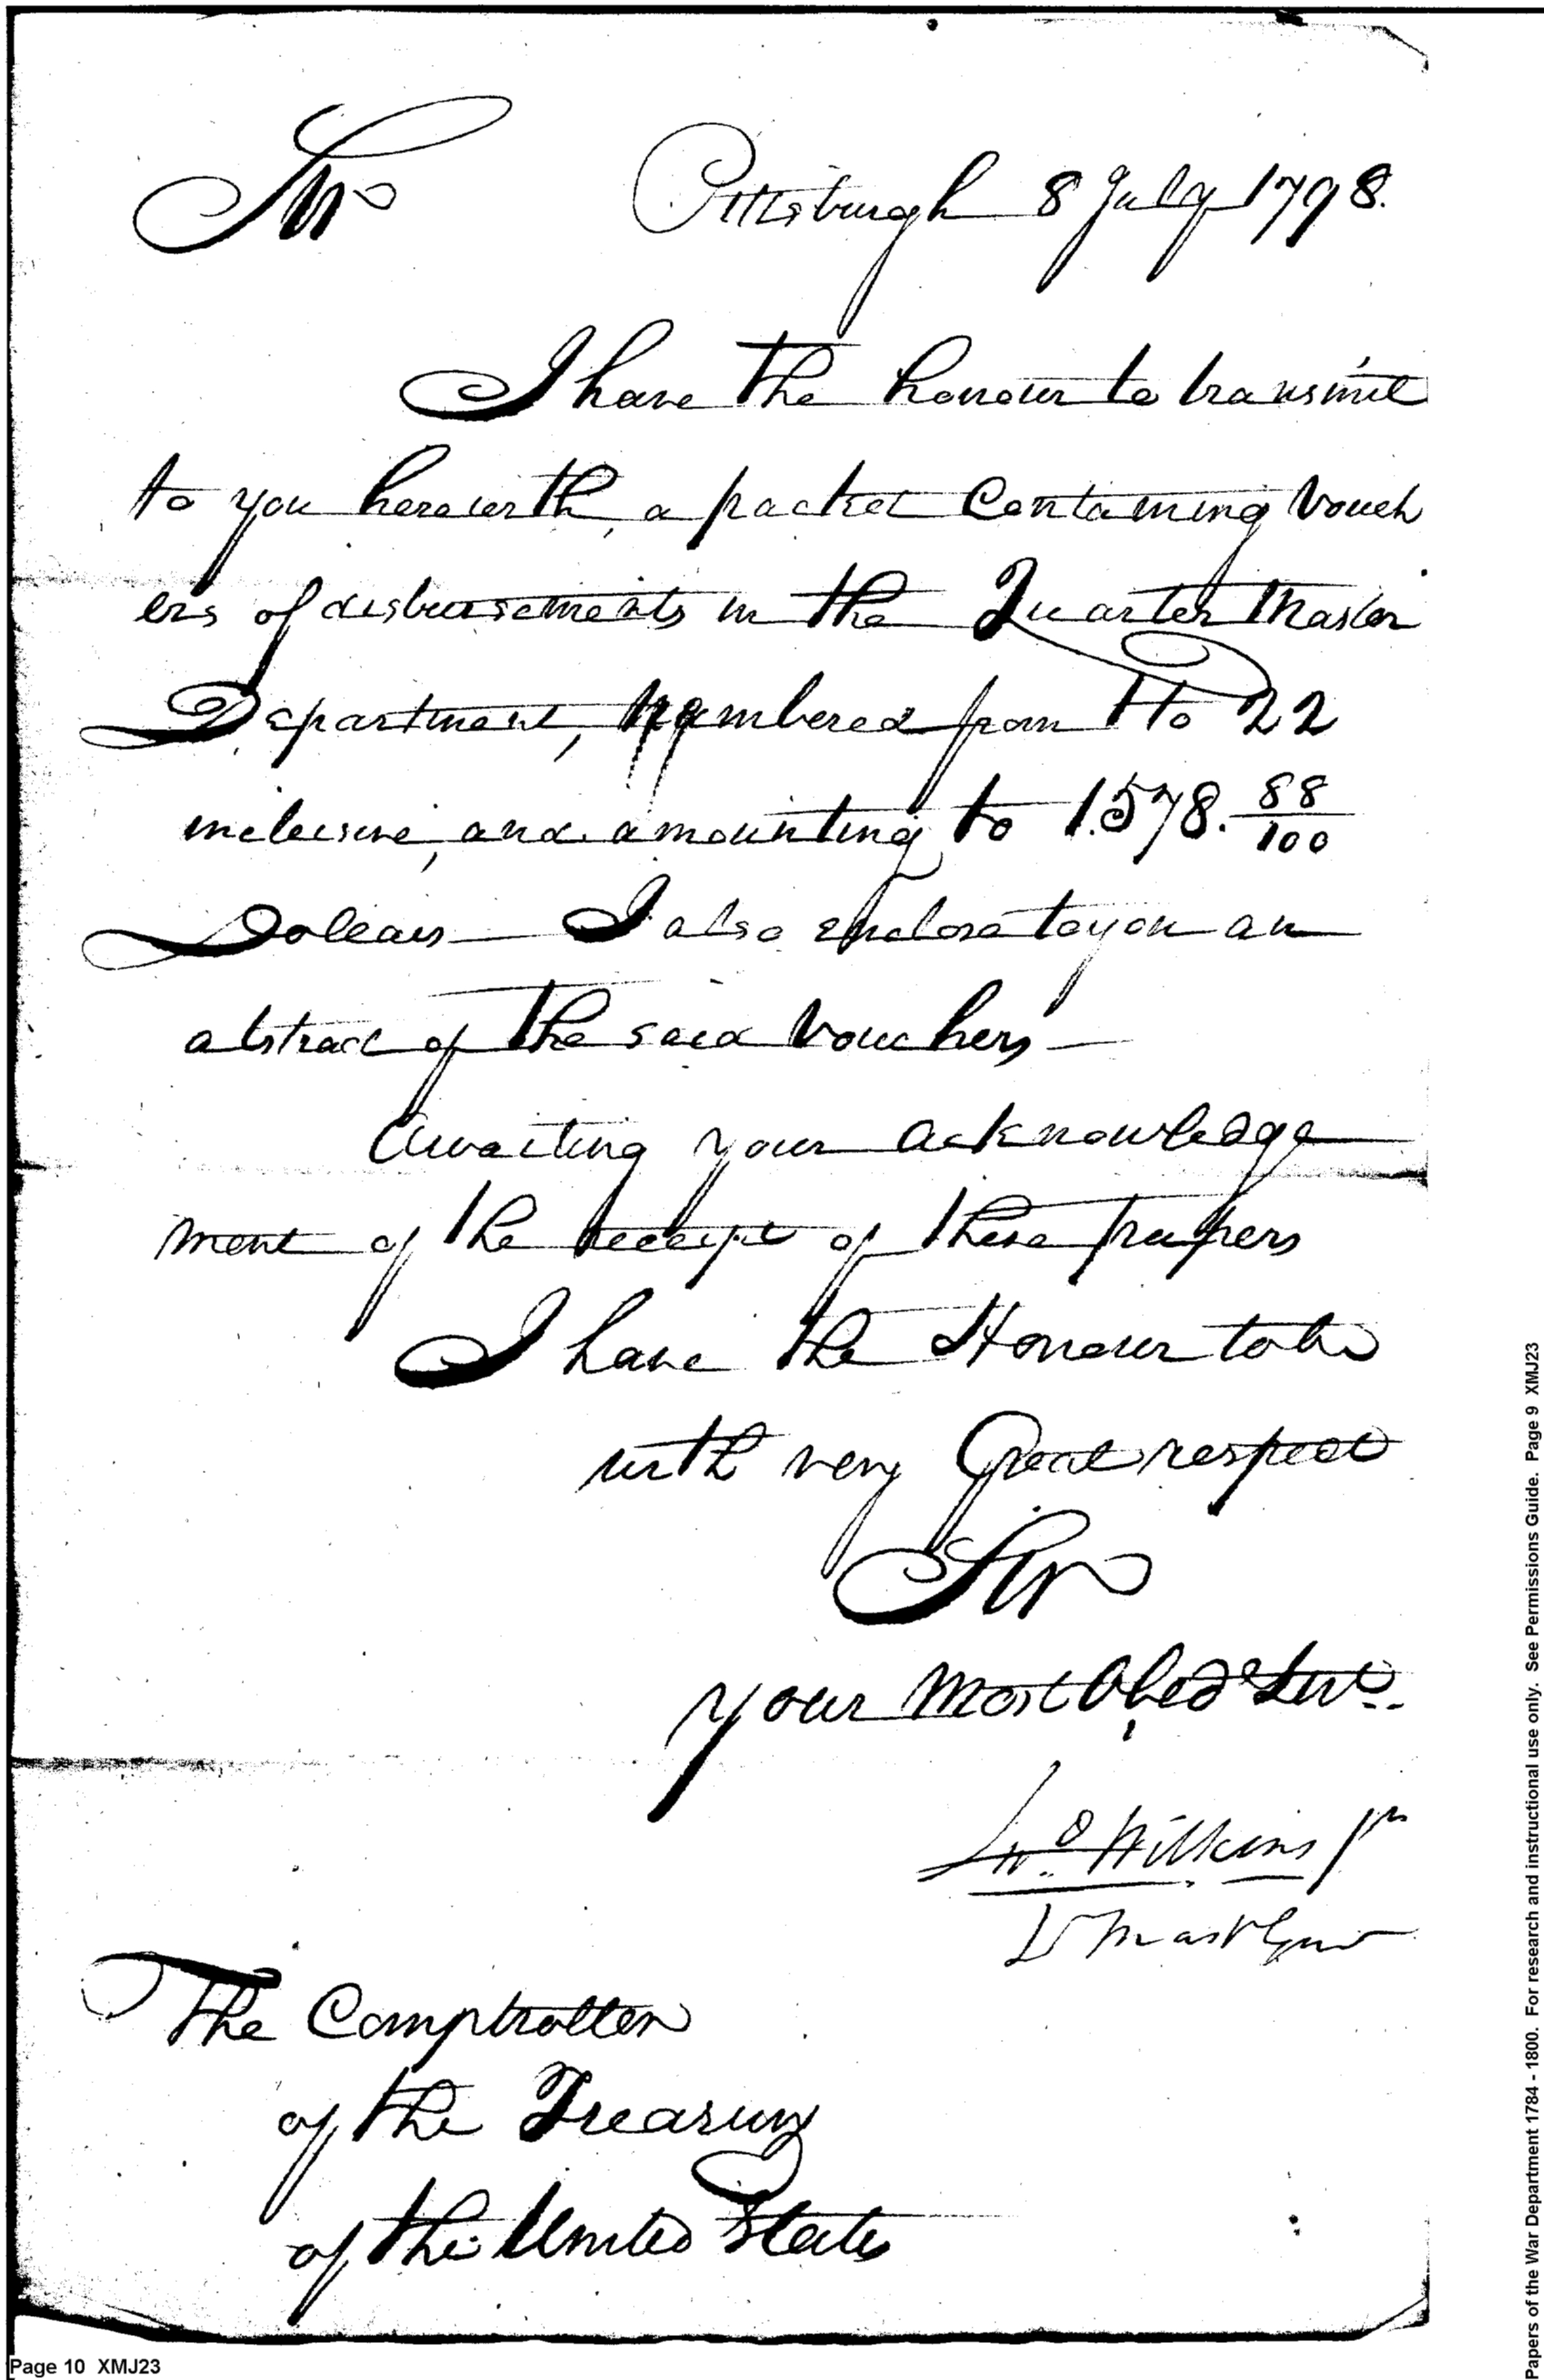 Sir Pittsburgh 8 July 1798.
I have the honour to transmit
to you herewith, a packet Containing Vouch
ers of disbursements in the Quarter Master
Department, Numbered from 1 to 22
inclusive, and amounting to 1.578. 88/100
Dollars — I also enclose to you an
abstract of the said Vouchers —
Awaiting your acknowledge
ment of the receipt of these papers
I have the Honour to be
with very Great respect
Sir
your Most Obed Servt
Jno Wilkins Jr
Qr Mast Genl
The Comptroller
of the Treasury
of the United States
Page 10 XMJ23
Papers of the War Department 1784 - 1800. For research and instructional use only. See Permissions Guide. Page 9 XMJ23